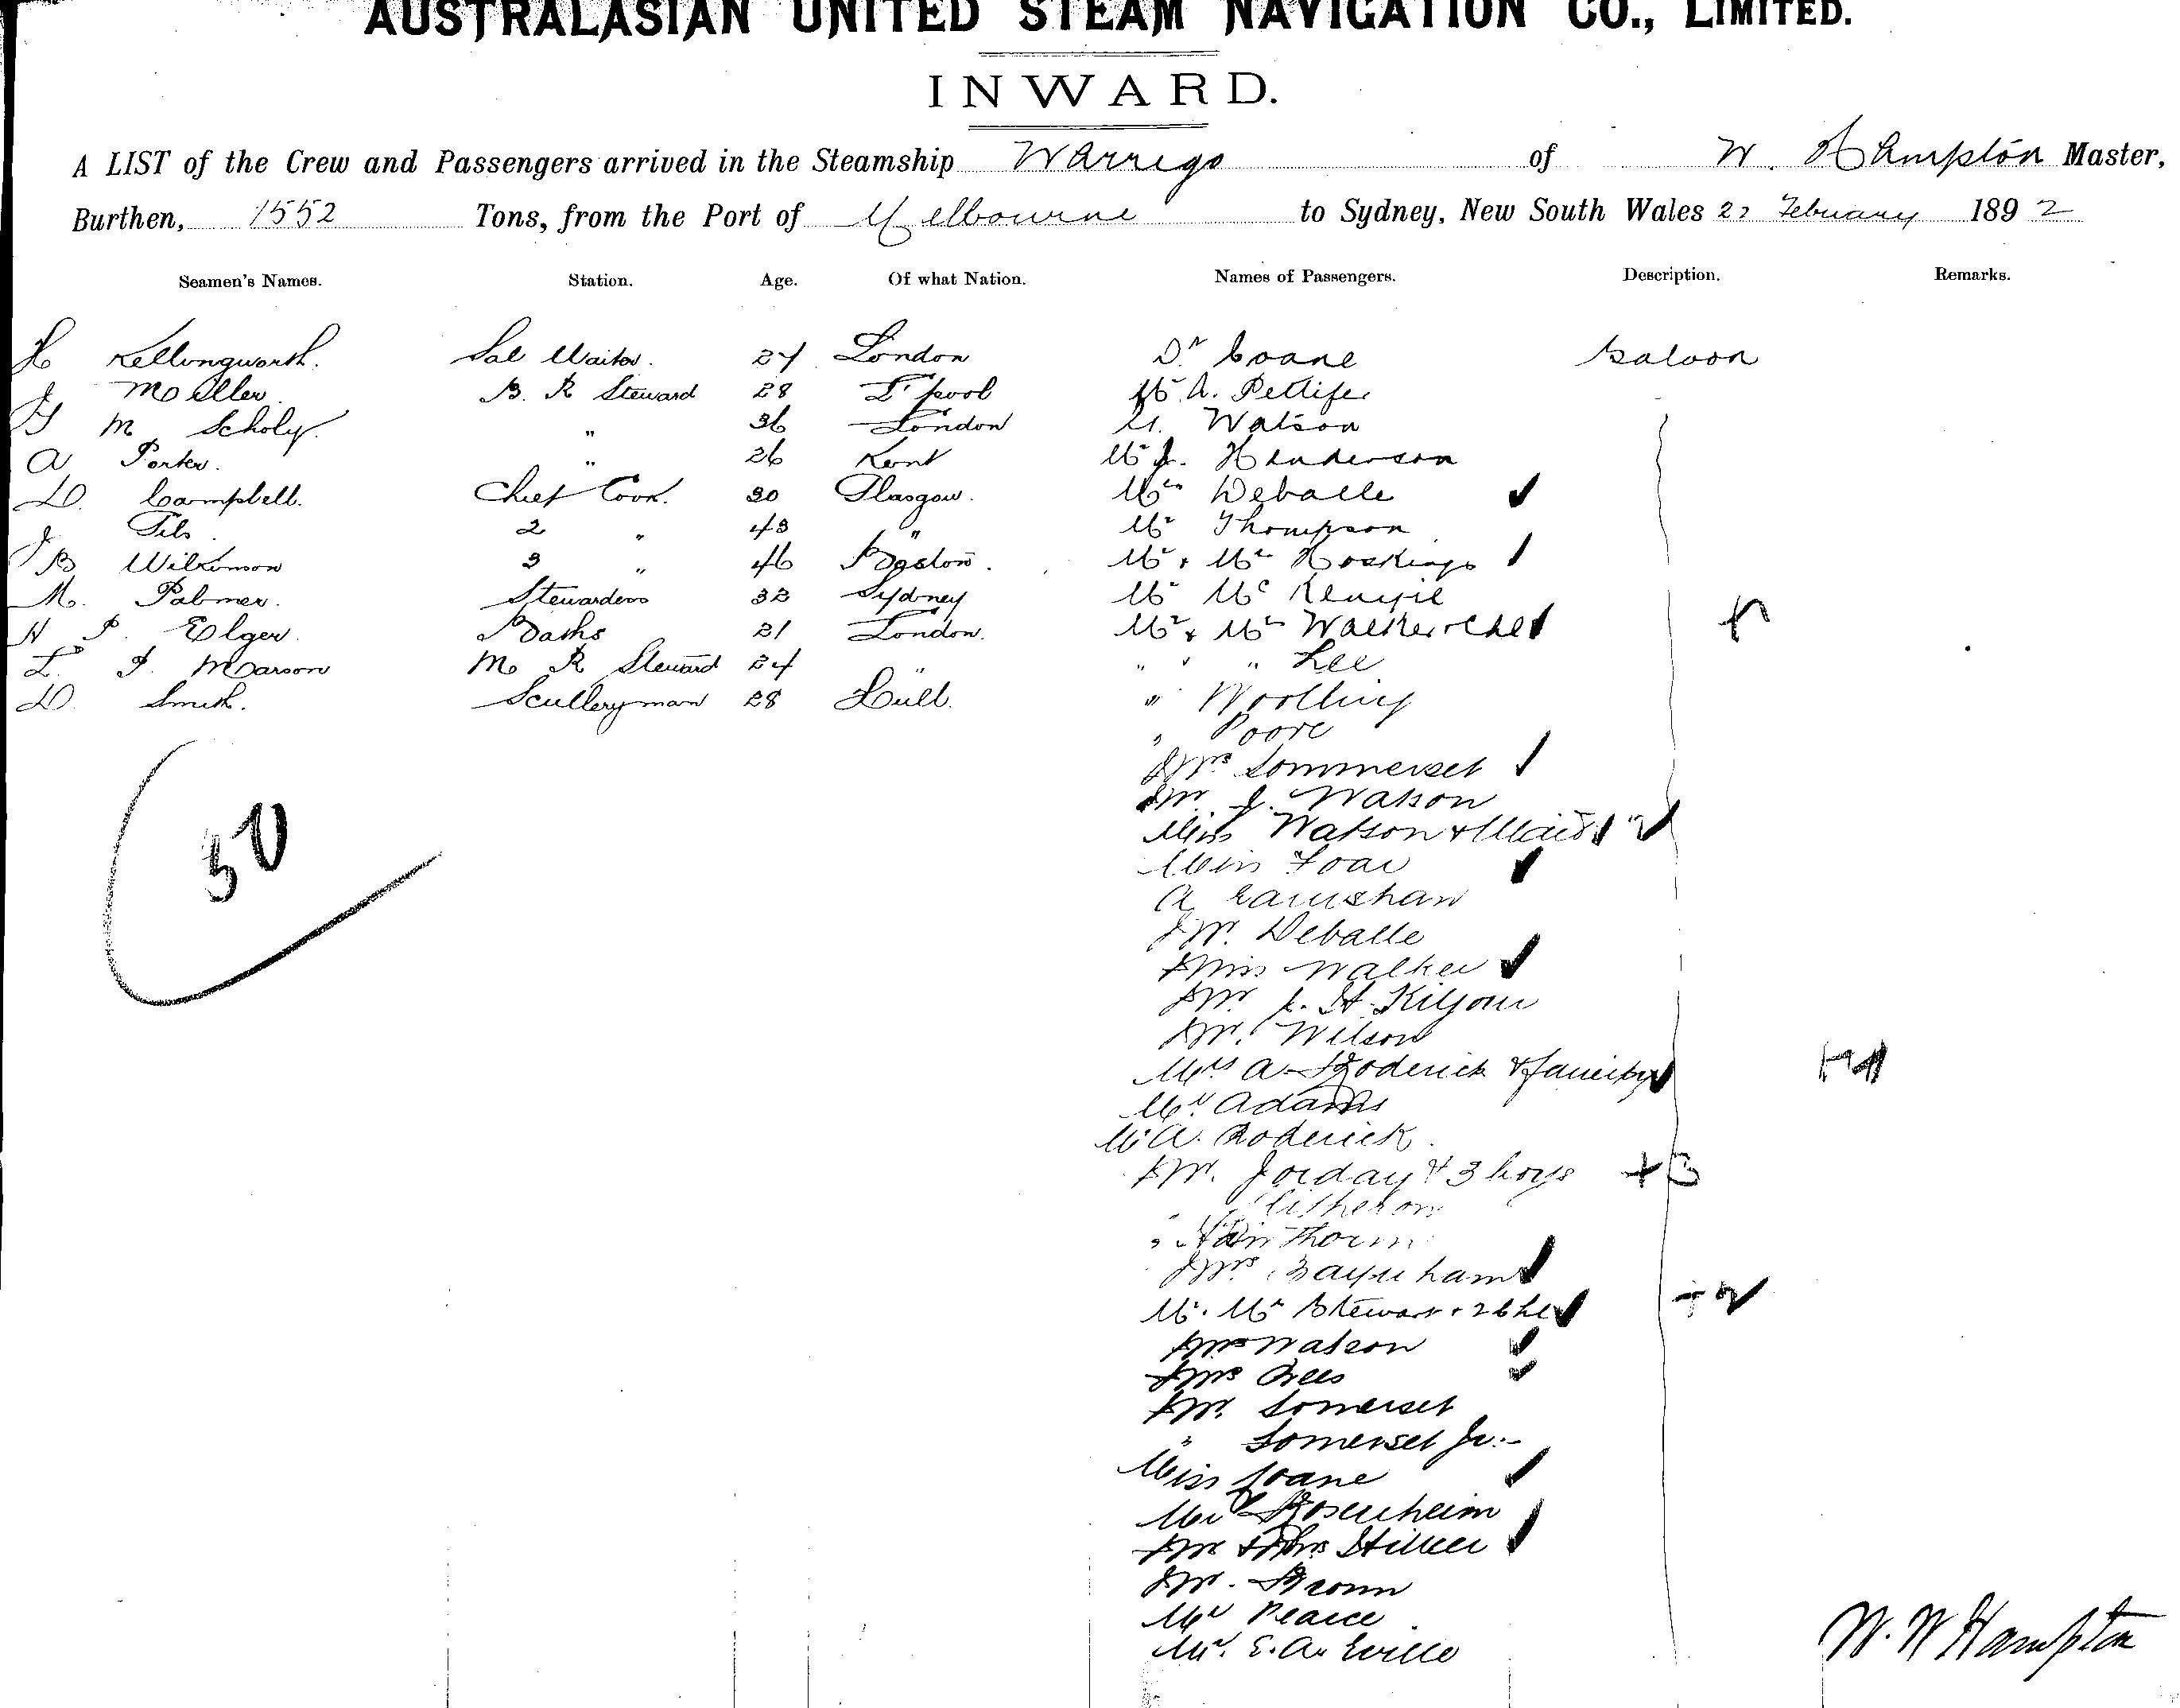 AUSTRALASIAN UNITED STEAM NAVIGATION CO., LIMITED.
INWARD.
A LIST of the Crew and Passengers arrived in the Steamship Warrego of W. Hampton Master,
Burthen, 1552 Tons, from the Port of Melbourne to Sydney, New South Wales 22 February 1892
Seamen's Names. Station. Age. Of what Nation. Names of Passengers. Description. Remarks.
H Kellingworth. Sal Waiter. 24 London Dr Coane Saloon
J B. R Steward 28 L'pool A. Pettifer
M Scholy. " 36 London Watson
A Porter. " 26 Kent Mr J. Henderson
D. Campbell. Chief Cook. 30 Glasgow. Mrs Deballe
J 2 " 43 " Mr Thompson
B Wilkinson 3 " 46 Mr & Mrs Hoskings
M. Palmer. Stewardess 33 Sydney Mr McKenzie
H P. Elger. Baths 21 London. Mr & Mrs Walker & Chd
Marson M R Steward 24 " " " " Lee
D Smith. Sculleryman 28 Hull. "
" Poore
Mrs Sommerset
Mr J. Watson
Miss Watson & Maid 2
Miss
A Earnshaw
Mr. Deballe
Miss Walker
Mr. J. H. Kilgour
Mr. Wilson
Mrs A. Roderick & family
Mr. Adams
Mr A. Roderick.
Mr. Jorday & 3 boys +3
"
"
Mrs.
Mr. Mrs Stewart & 2 Chd +2
Mrs Watson
Mrs Rees
Mr. Somerset
" Somerset Jr.
Miss Coane
Mr Rosenheim
Mr & Mrs
Mr. Brown
Mr Pearce
Mr. E. A. Eville
50
W. W Hampton